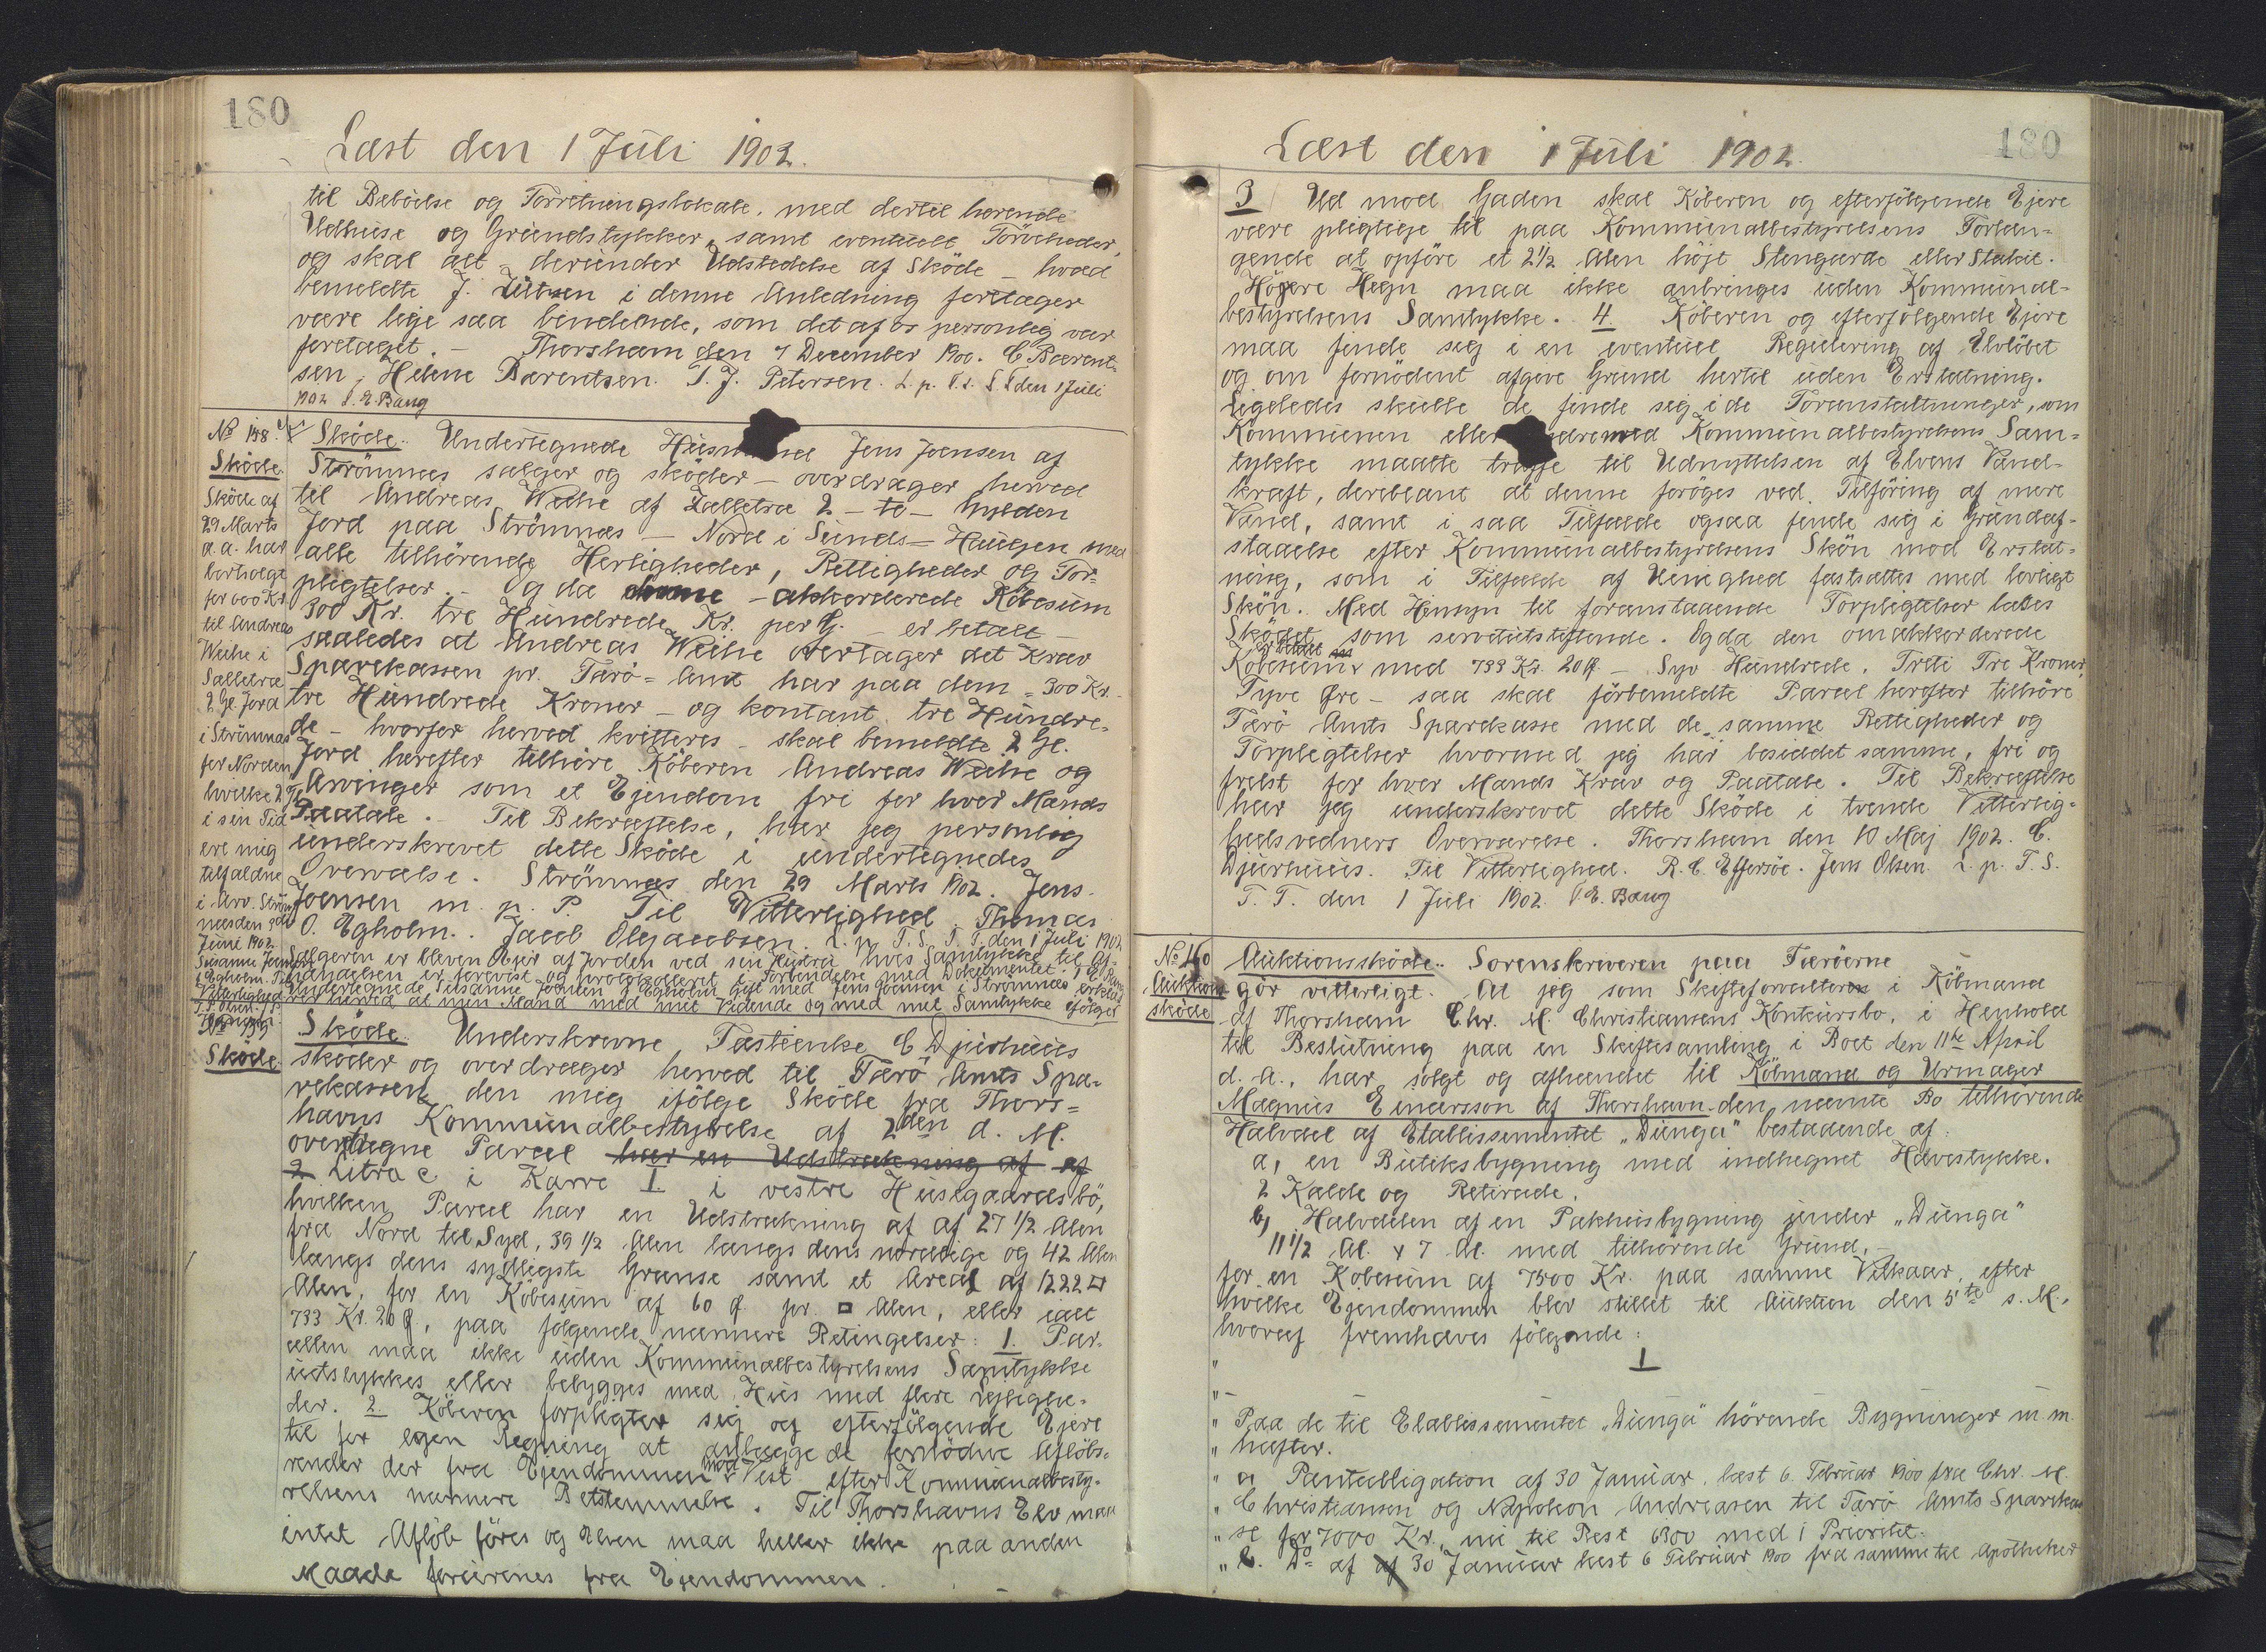 180
Læst den 1 Juli 1902.
til Beboelse og Forretningslokale, med dertil hørende
Udhuse og Grundstykker, samt eventuelt Tørveheder,
og skal alt - derunder Udstedelse af Sköde - hvad
bemeldte J. Lützen i denne Anledning foretager
være lige saa bindende, som det af os personlig var
foretaget. - Thorshavn den 7 December 1900. C Bærent-
sen, Helene Bærentsen. P. J. Petersen. L. p. T. S. T. T. den 1 Juli
1902 P. E. Bang
No 158.
Sköde
Sköde af
29 Marts
d. a. har
for 600 Kr
til Andreas
Weihe i
Salletræ
2 Gl. Jord
i Strömnæs
for Norden
hvilke 2 Gl
i sen Tid
ere mig
tilfaldne
i Arv. Ström
næs den
Juni 1902.
Susanne Joensen
f. Egholm. Til
Vitterlighed
Sköde. Undertegnede Husmand Jens Joensen af
Strömnæs sælger og sköder - overdrager herved
til Andreas Weihe af Zalletræ 2 - to - Gylden
Jord paa Strömnæs - Nord i Sunds - Haugen med
alle tilhörende Herligheder, Rettigheder og For-
pligtelser. - Og da denne - akkorderede Köbesum
300 Kr. tre Hundrede Kr. per G. - er betalt -
saaledes at Andreas Weihe overtager det Krav
Sparekassen pr. Færö = Amt har paa dem = 300 Kr.
tre Hundrede Kroner - og kontant tre Hundre-
de - hvorfor herved kvitteres - skal bemeldte 2 Gl.
Jord herefter tilhöre Köberen Andreas Weihe og
Arvinger som et Ejendom fri for hver Mands
Paatale. - Til Bekræftelse, har jeg personlig
underskrevet dette Sköde i undertegnedes
Overvælse. Strömnæs den 29 Marts 1902. Jens
Joensen m. p. P. Til Vitterlighed. Thomas
O. Egholm. Jacob Olejacobsen. L. p. T. S. T. T. den 1 Juli 1902
Sælgeren er bleven Ejer af Jorden ved sin Hustru hvis Samtykke til Af-
hændelsen er forevist og protokolleret i Forbindelse med Dokumentet. P E Bang
Undertegnede Susanne Joensen f. Egholm gift med Jens Joensen i Strömnæs erklæ-
rer herved at min Mand med mit Vidende og med mit Samtykke ifölge
No 159
Sköde
Sköde. Underskrevne Tastienke C Djurhuus
sköder og overdrager herved til Færö Amts Spa-
rekassen den mig ifölge Sköde fra Thors-
havns Kommunalbestyrelse af 2den d. M.
overdragne Parcel har en Udstrækning af af
2 Litra c i Karre I i vestre Husegaardsbö,
hvilken Parcel har en Udstrækning af af 27 1/2 Alen
fra Nord til Syd, 39 1/2 Alen langs dens nordlige og 42 Alen
langs dens sydligste Grænse samt et Areal af 1222 □
Alen, for en Köbesum af 60 Ø pr. □ Alen, eller ialt
733 Kr. 20 Ø, paa følgende nærmere Betingelser: 1. Par-
cellen maa ikke uden Kommunalbestyrelsens Samtykke
udstykkes eller bebygges med Hus med flere Lejlighe-
der. 2. Köberen forpligter sig og efterfölgende Ejere
til for egen Regning at anlægge de fornödne Aflöbs-
render der fra Ejendommen mod Vest efter Kommunalbesty-
relsens nærmere Bestemmelse. Til Thorshavns Elv maa
intet Aflöb föres og Elven maa heller ikke paa anden
Maade forurenes fra Ejendommen.
180
Læst den 1 Juli 1902.
3 Ud mod Gaden skal Köberen og efterfölgende Ejere
være pligtige til paa Kommunalbestyrelsens Forlan-
gende at opföre et 2 1/2 Alen höjt Stengærde eller Stakit.
Höjere Hegn maa ikke anbringes uden Kommunal-
bestyrelsens Samtykke. 4. Köberen og efterfölgende Ejere
maa finde sig i en eventuel Regulering af Elvlöbet
og om fornödent afgive Grund hertil uden Erstatning.
Ligeledes skulle de finde sig i de Foranstaltninger, som
Kommunen eller andre med Kommunalbestyrelsens Sam-
tykke maatte træffe til Udnyttelsen af Elvens Vand-
kraft, deriblant at denne foröges ved Tilföring af mere
Vand, samt i saa Tilfælde ogsaa finde sig i Grundaf-
staaelse efter Kommunalbestyrelsens Skön mod Erstat-
ning, som i Tilfælde af Uenighed fastsættes med lovligt
Skön. Med Hensyn til foranstaaende Forpligtelser læses
Sködet som servitutstiftende. Og da den omakkorderede
Köbesum er betalt med 733 Kr. 20 Ø - Syv Hundrede, Treti Tre Kroner,
Tyve Öre - saa skal förbemeldte Parcel herefter tilhöre
Færö Amts Sparekasse med de samme Rettigheder og
Forpligtelser hvormed jeg har besiddet samme, fri og
frelst for hver Mands Krav og Paatale. Til Bekræftelse
har jeg underskrevet dette Sköde i tvende Vitterlig-
hedsvedners Overværelse. Thorshavn den 10 Maj 1902. C.
Djurhuus. Til Vitterlighed. R. C. Effersöe. Jens Olsen. L. p. T. S.
T. T. den 1 Juli 1902. P. E. Bang
No 160
Auktions
sköde
Auktionssköde. Sorenskriveren paa Færöerne
gör vitterligt. At jeg som Skifteforvalter i Köbmand
af Thorshavn Chr. M. Christiansens Konkursbo, i Henhold
til Beslutning paa en Skiftesamling i Boet den 11te April
d. A., har solgt og afhændet til Köbmand og Urmager
Magnus Einarsson af Thorshavn den nævnte Bo tilhörende
Halvdel af Etablissementet „Dunga" bestaaende af:
a, en Butiksbygning med indhegnet Havestykke.
2 Kalde og Retirade.
b, Halvdelen af en Pakhusbygning under „Dunga"
11 1/2 Al. x 7 Al. med tilhörende Grund,
for en Köbesum af 7500 Kr. paa samme Vilkaar, efter
hvilke Ejendommen blev stillet til Auktion den 5te s. M.,
hvoraf fremhæves fölgende:
1
" Paa de til Etablissementet „Dunga" hörende Bygninger m. m.
" hæfter.
" a Panteobligation af 30 Januar, læst 6. Februar 1900 fra Chr. M.
" Christiansen og Napoleon Andreasen til Færö Amts Sparekas
" se for 7000 Kr., nu til Rest 6300 med 1 Prioritet.
" b. Do af af 30 Januar læst 6 Februar 1900 fra samme til Apotheker